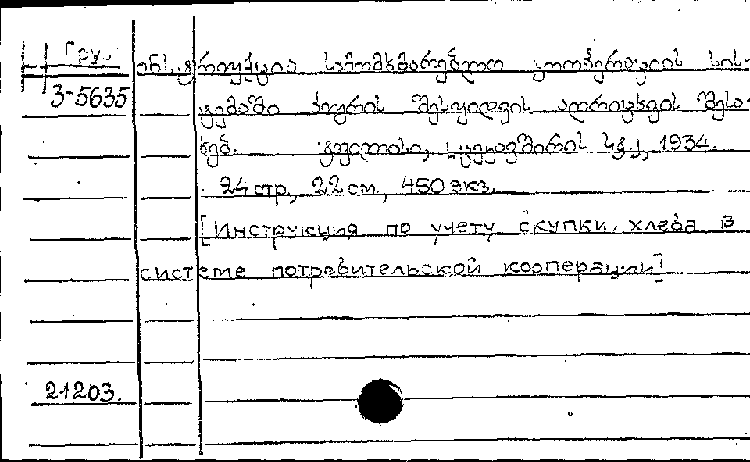 Груз
3-5635
ინსტრუქცია სამომხმარებლო კოოპერაციის სის-
ტემაში პურის შესყიდვის აღრიცხვის შესა-
ხებ. ტფილისი, 1934.
24 стр., 22 см., 450 экз.
[Инструкция по учету скупки хлеба в
системе потребительской кооперации]
21203.